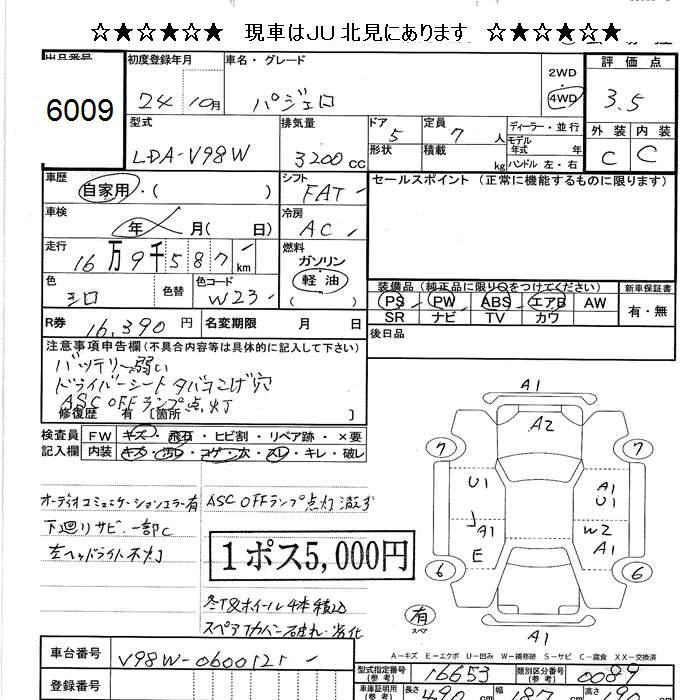 ☆★☆★☆★ 現車はJU北見にあります ☆★☆★☆★
出品番号 6009
初度登録年月 24 10月
車名・グレード パジェロ
2WD 4WD
評価点 3.5
外装 C 内装 C
型式 LDA-V98W
排気量 3200cc
ドア 5 定員 7人
形状 積載 kg
ディーラー・並行
モデル年式 年
ハンドル 左・右
車歴 自家用・( )
シフト FAT
セールスポイント (正常に機能するものに限ります)
車検 年 月( 日)
冷房 AC
走行 16万9千587km
燃料 ガソリン 軽油 ( )
色 シロ 色替 色コード W23
装備品(純正品に限り○をつけてください) 新車保証書
PS PW ABS エアB AW 有・無
SR ナビ TV カワ
R券 16,390円 名変期限 月 日
後日品
注意事項申告欄(不具合内容等は具体的に記入して下さい)
バッテリー弱い
ドライバーシートタバコこげ穴
ASC OFFランプ点灯
修復歴 有 [箇所 ]
検査員記入欄
FW キズ・飛石・ヒビ割・リペア跡・×要
内装 キズ・汚レ・コゲ・穴・スレ・キレ・破レ
オーディオコミュニケーションエラー有
ASC OFFランプ点灯消えず
下廻りサビ一部C
左ヘッドライト不灯
1ポス5,000円
冬T&ホイール4本積込
スペアTカバー破れ・劣化
A1
A2
7 7
U1 A1 U1
A1 E W2 A1
6 6
有 スペア
A1
A-キズ E-エクボ U-凹み W-補修跡 S-サビ C-腐食 XX-交換済
車台番号 V98W-0600121
登録番号
型式指定番号(参考) 16653 類別区分番号(参考) 0089
車庫証明用(参考) 長さ 490cm 幅 187cm 高さ